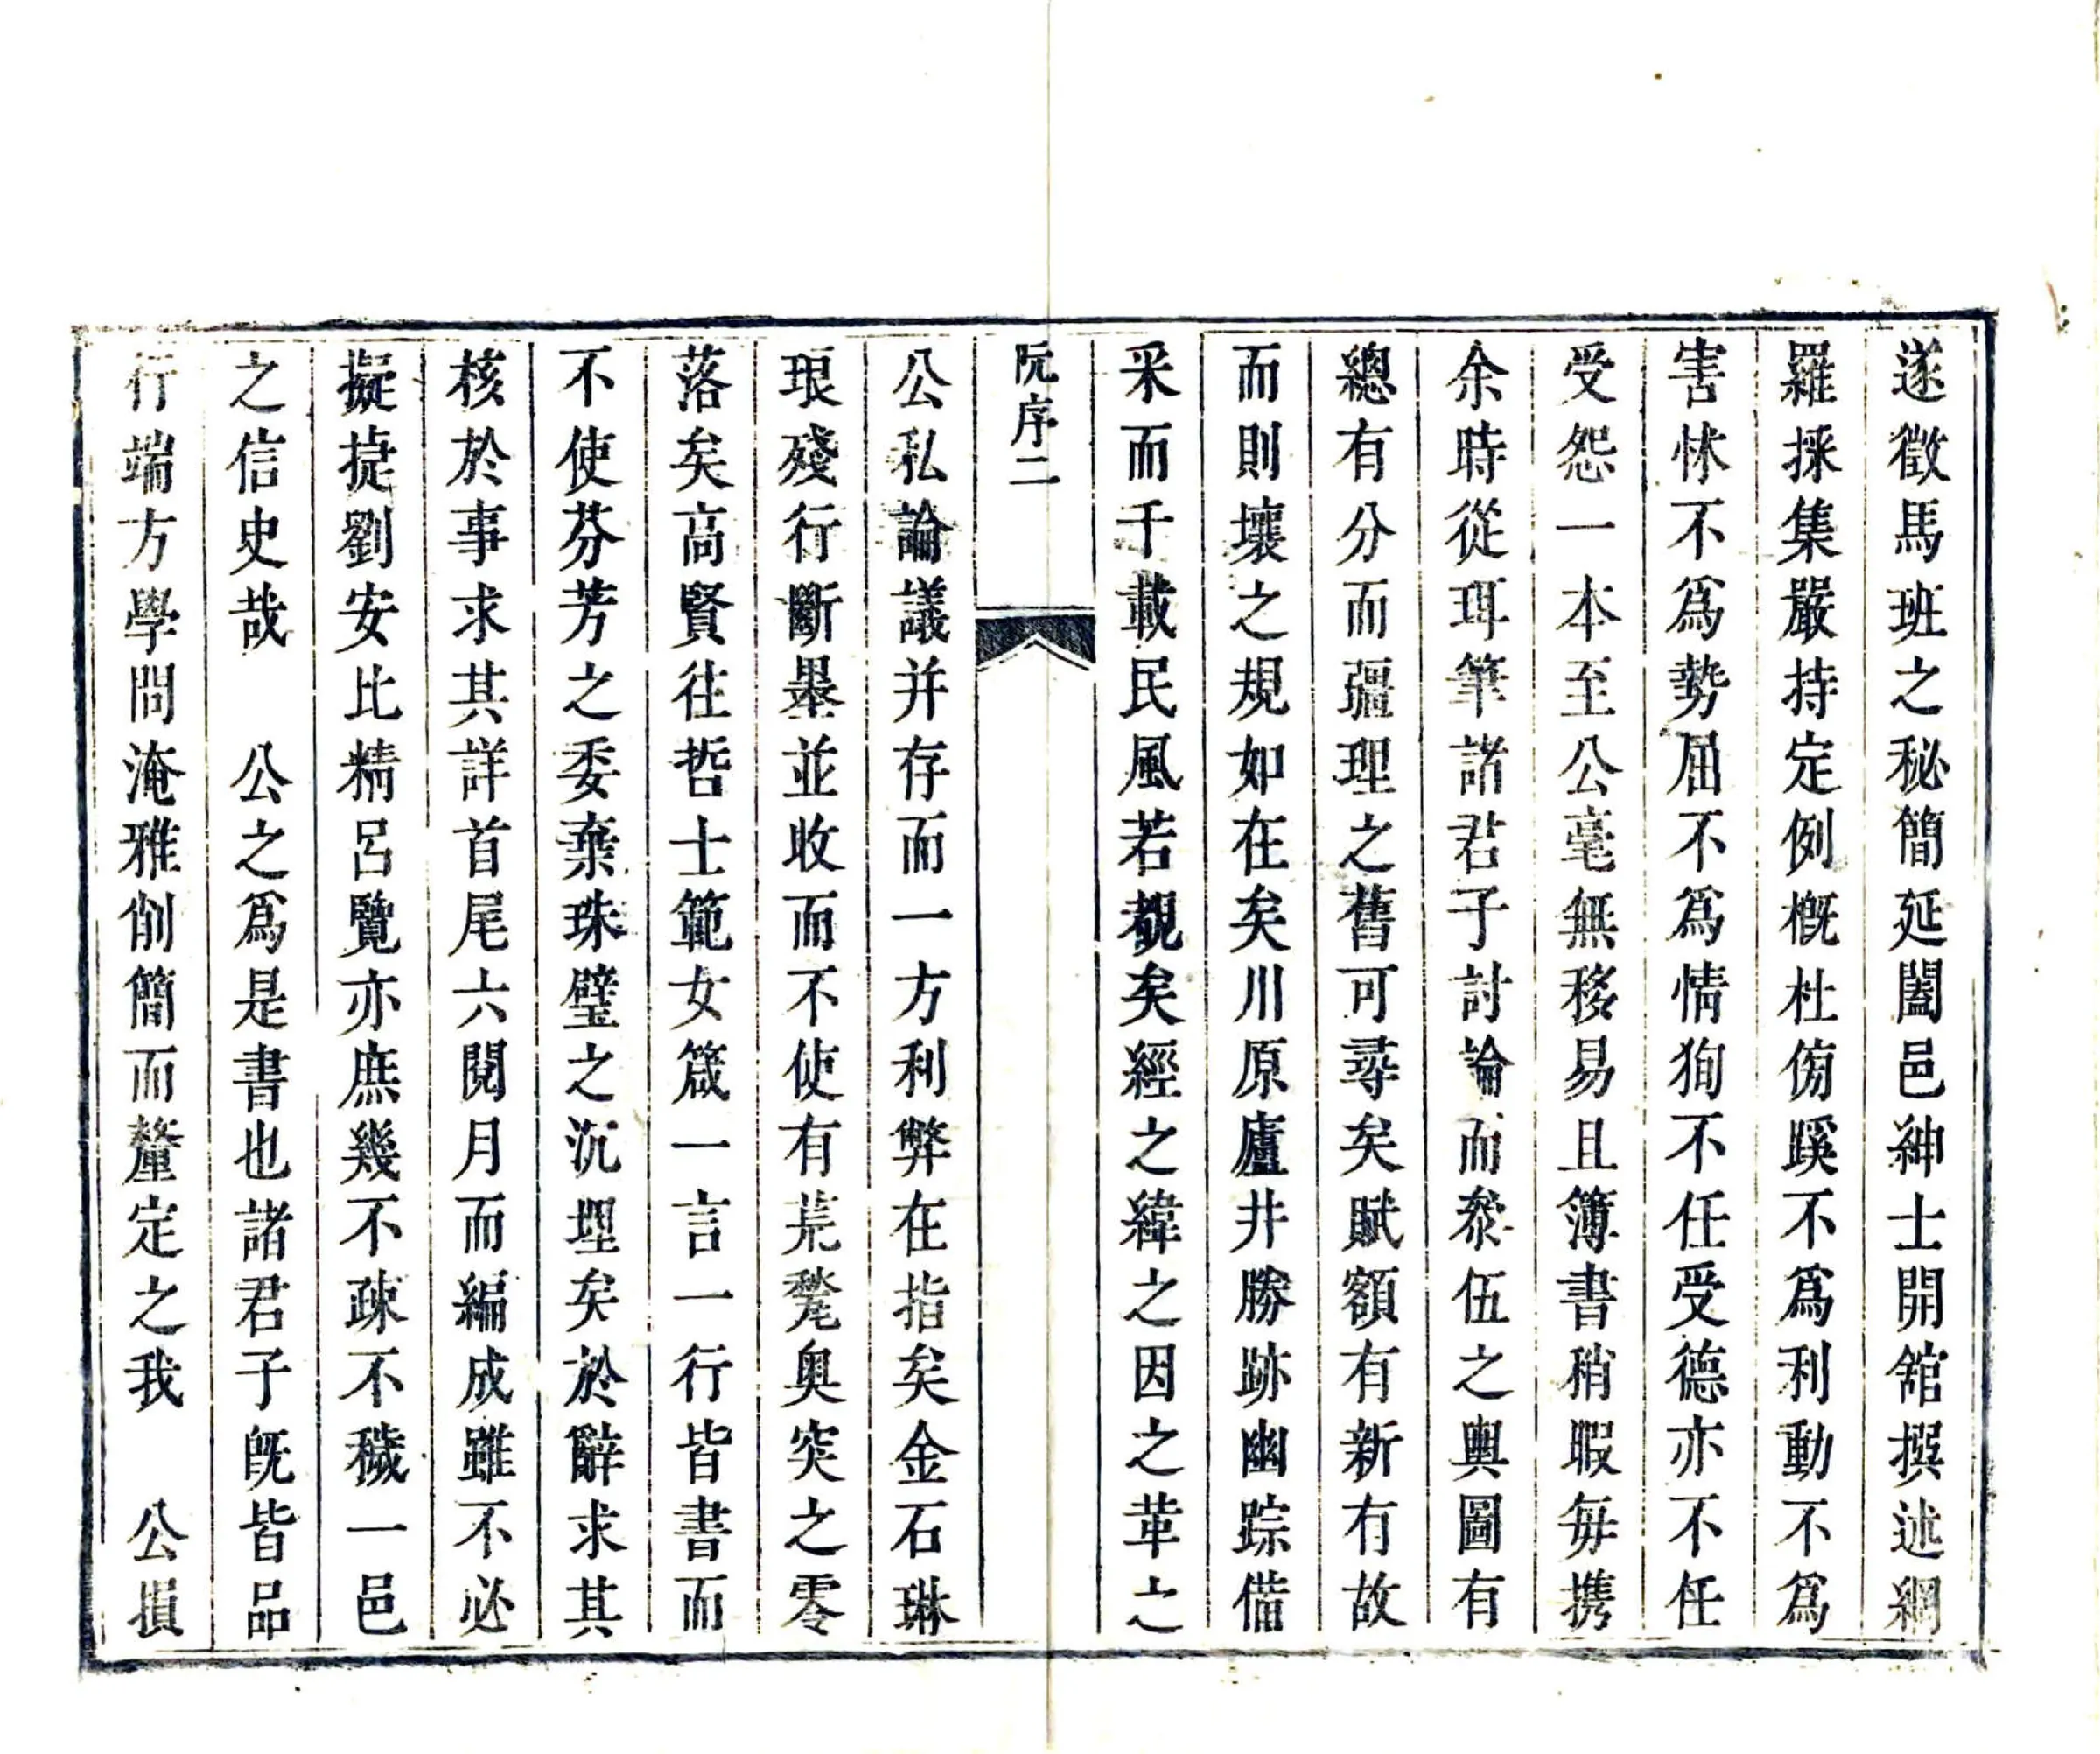 遂徵馬班之秘簡延闔邑紳士開舘撰述網
羅採集嚴持定例概杜傍蹊不爲利動不爲
害怵不爲勢屈不爲情狥不任受德亦不任
受怨一本至公毫無移易且簿書稍暇毎携
余時從珥筆諸君子討論而叅伍之輿圖有
總有分而疆理之舊可尋矣賦額有新有故
而則壤之規如在矣川原廬井勝跡幽踪偹
采而千載民風若覩矣經之緯之因之革之
阮序二
公私論議并存而一方利弊在指矣金石琳
琅殘行斷墨並收而不使有荒甃奥突之零
落矣高賢往哲士範女箴一言一行皆書而
不使芬芳之委棄珠璧之沉埋矣於辭求其
核於事求其詳首尾六閱月而編成雖不必
擬㨗劉安比精呂覽亦庶幾不疎不穢一邑
之信史哉　公之爲是書也諸君子旣皆品
行端方學問淹雅削簡而釐定之我　公損